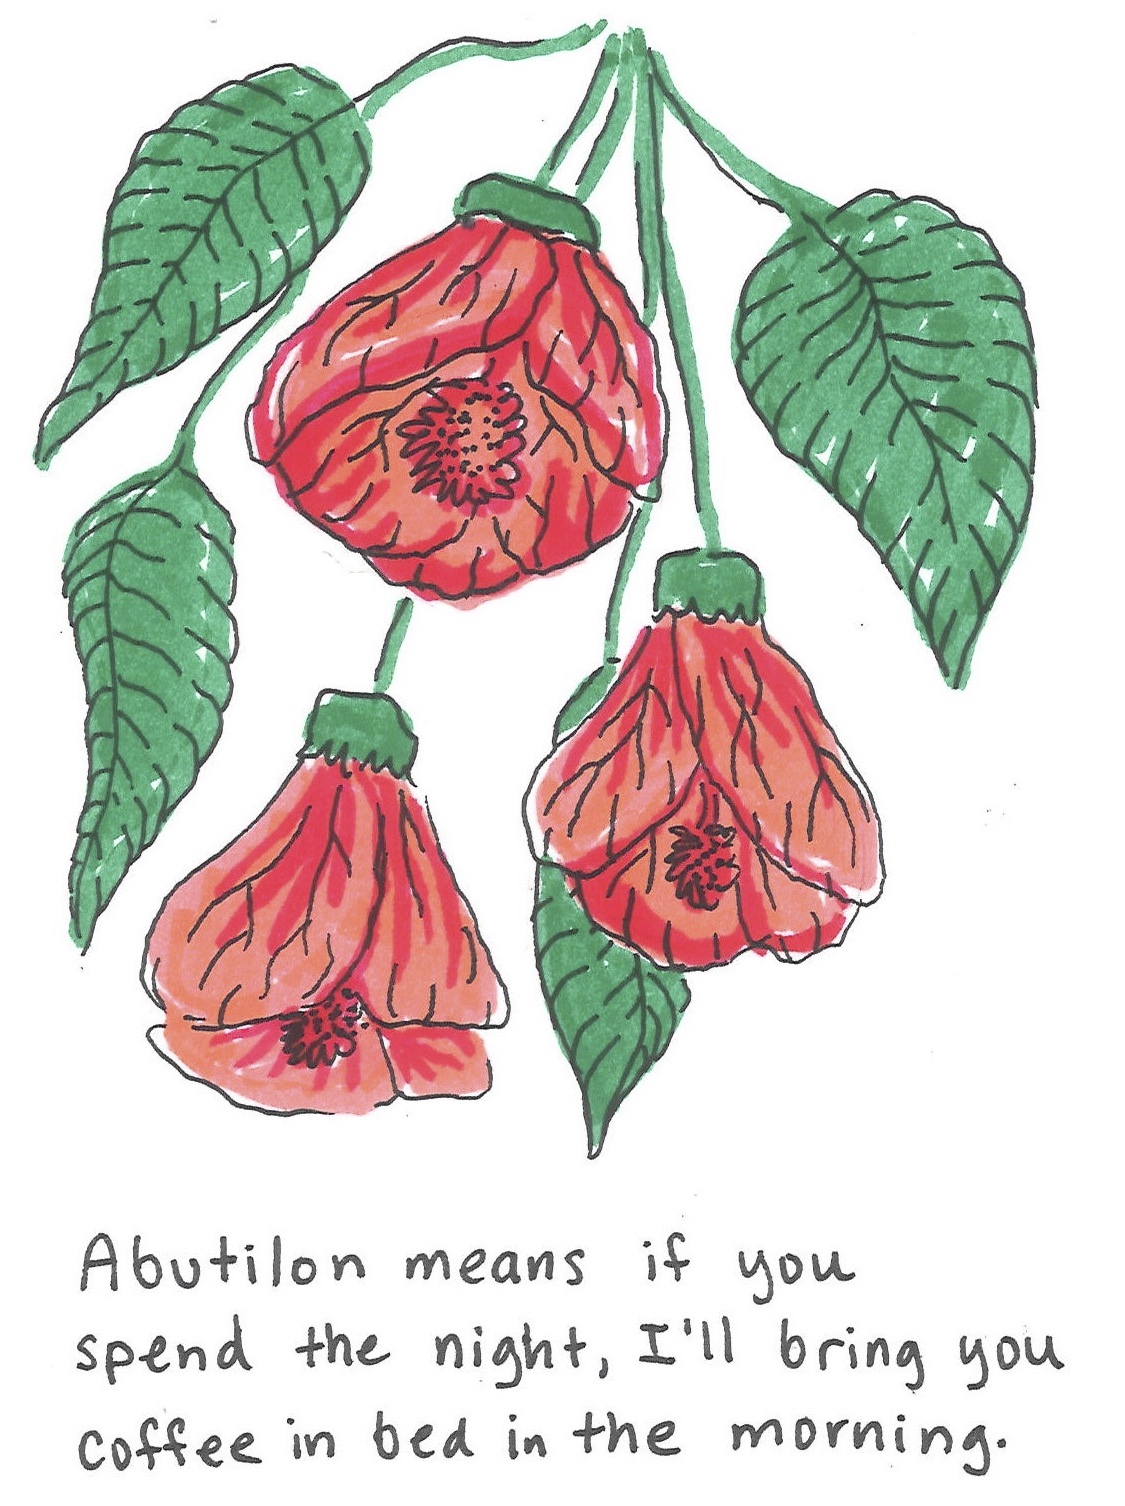 Abutilon means if you
spend the night, I'll bring you
coffee in bed in the morning.